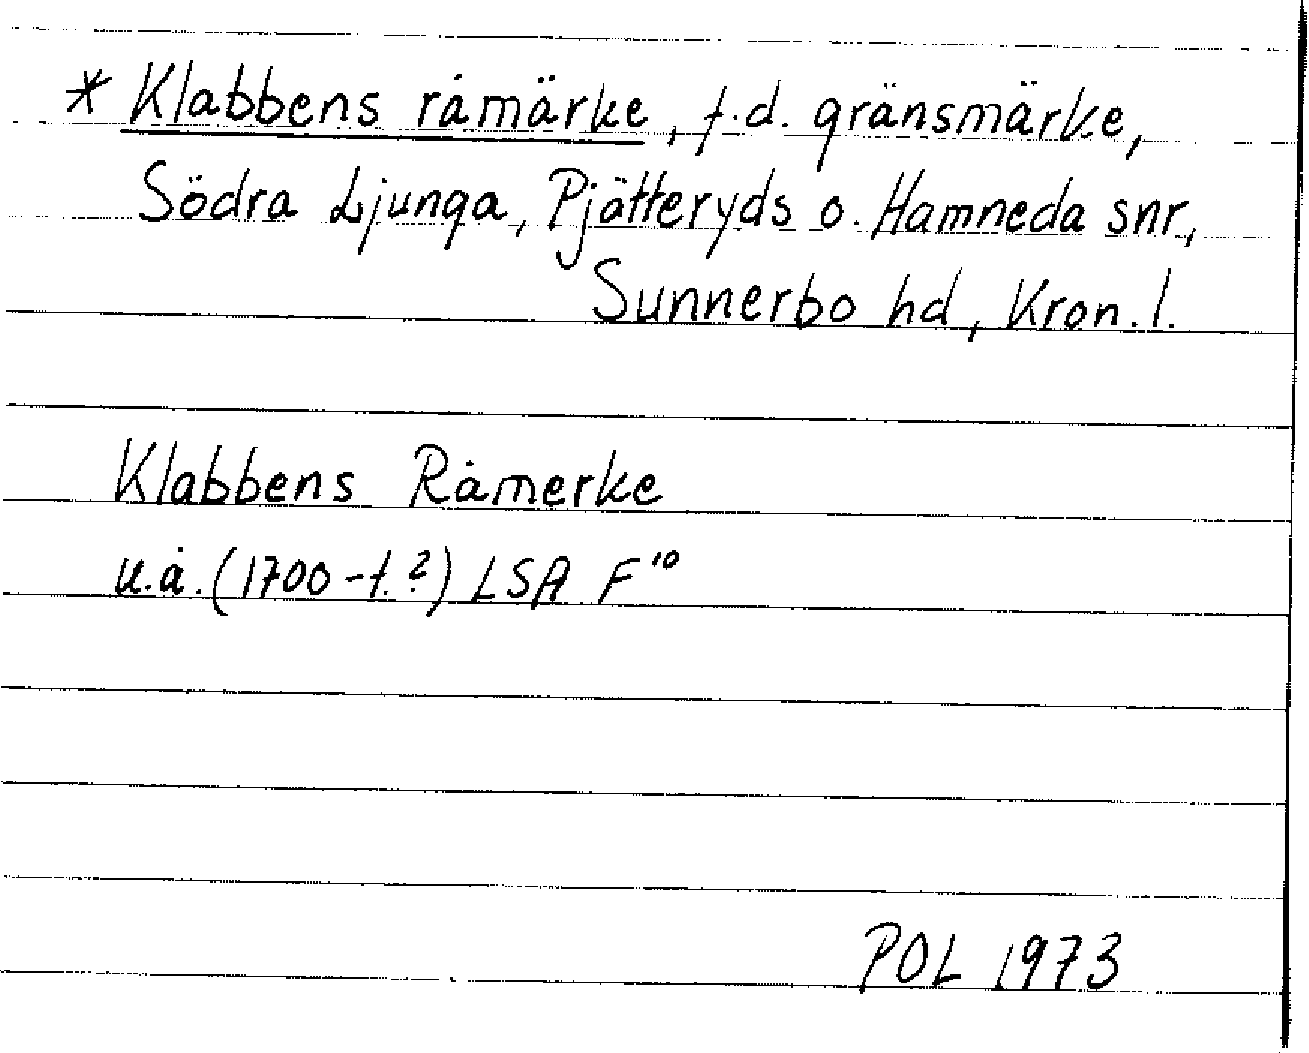 * Klabbens råmärke, f.d. gränsmärke,
Södra Ljunga, Pjätteryds o. Hamneda snr,
Sunnerbo hd, Kron. l.
Klabbens Råmerke
u.å. (1700-t.?) LSA F¹⁰
POL 1973